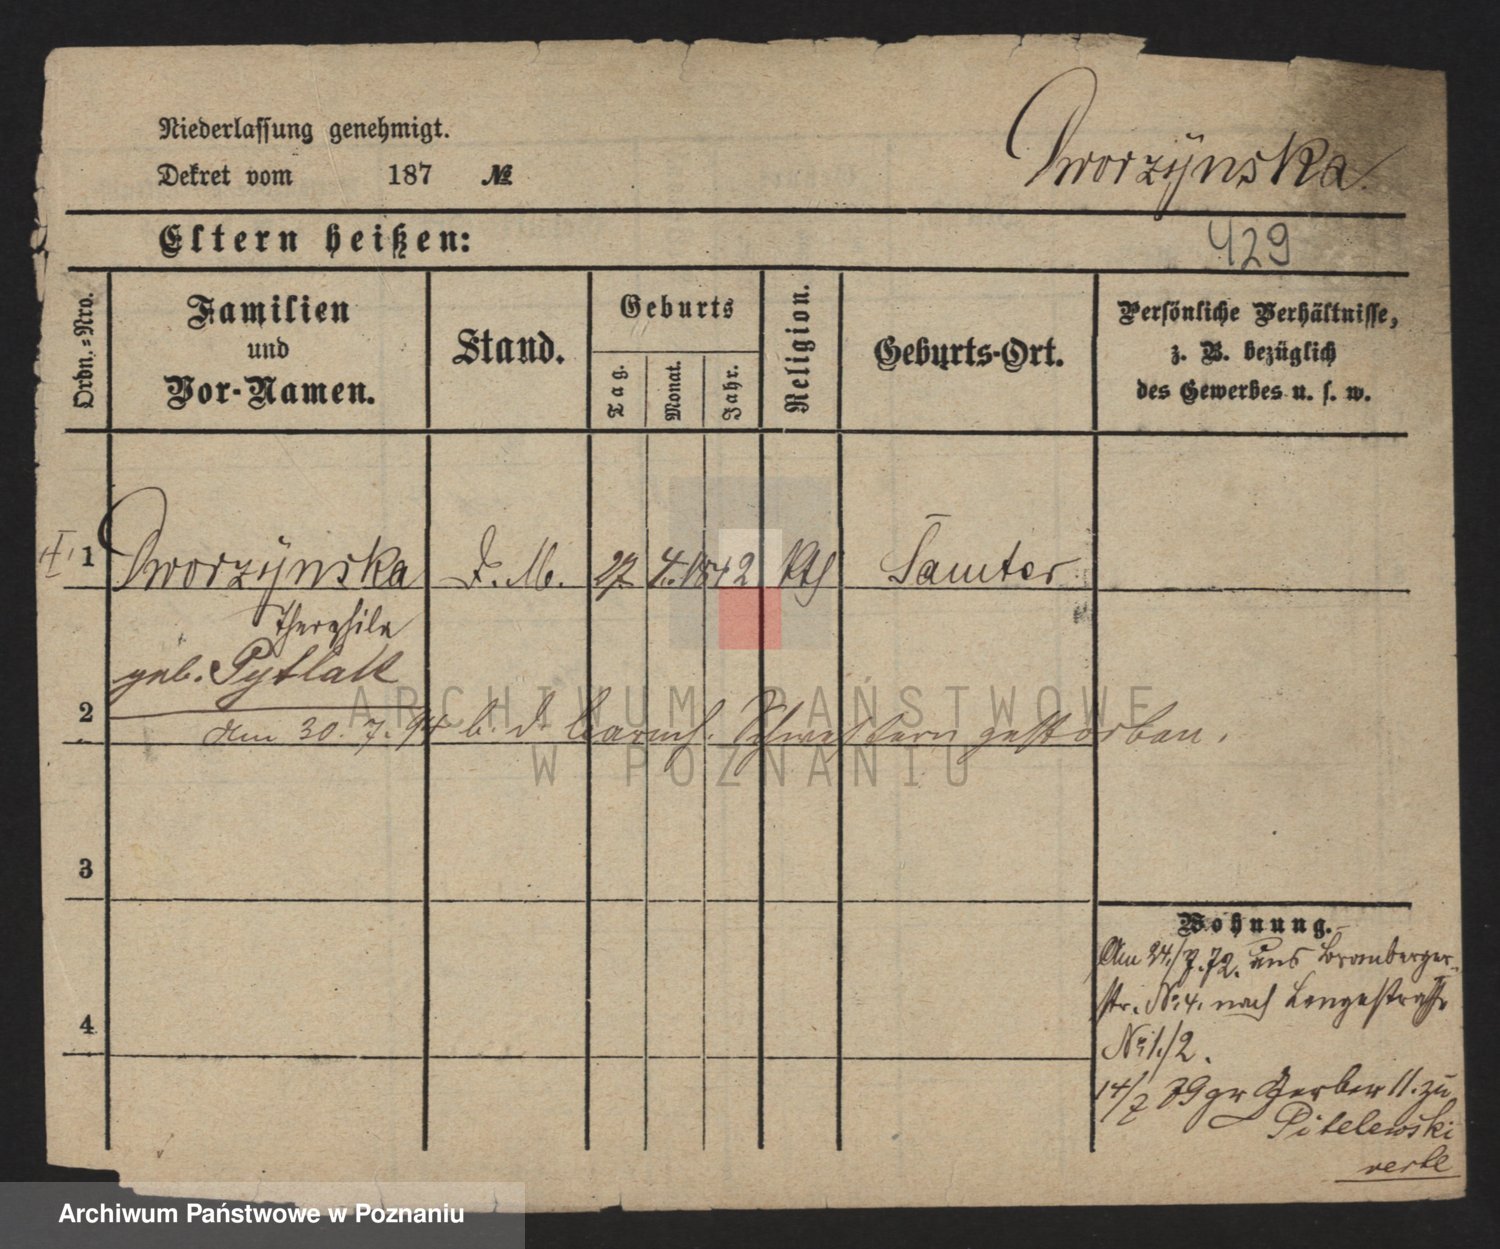 Niederlassung genehmigt.
Dekret vom 187 №
Dworzÿnska.
Eltern heißen:
429
Ordn.=Nro.
Familien
und
Vor-Namen.
Stand.
Geburts
Tag.
Monat.
Jahr.
Religion.
Geburts-Ort.
Persönliche Verhältnisse,
z. B. bezüglich
des Gewerbes u. s. w.
1 Dworzÿnska D. M. 27 4. 1842 Kth Samter
Theophila
geb. Pytlak
2
am 30. 7. 94 b. d. barmh. Schwestern gestorben.
3
4
Wohnung.
Am 24./7. 72. aus Bromberger-
str. No. 4. nach Langestrasse
No. 1./2.
14/7 79 gr Gerber 11. zu
Pitelewski
ARCHIWUM PAŃSTWOWE
W POZNANIU
Archiwum Państwowe w Poznaniu